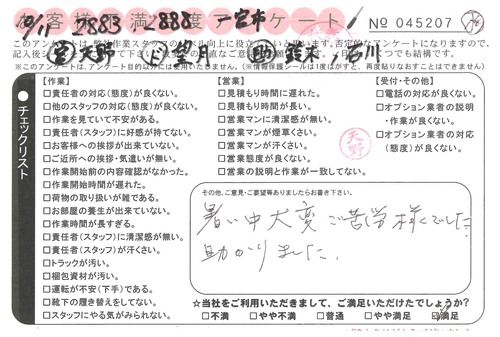 お客様満足度アンケート! No 045207
10/1P 2883 <888
㊣ 天野 ㋣ 望月 ㊐ 鈴木/石川
※このアンケートは、アンケート目的以外には使用いたしません。(※情報保護シールは1度はがすと、再度貼りなおすことはできません)
チェックリスト
【作業】
□責任者の対応(態度)が良くない。
□他のスタッフの対応(態度)が良くない。
□作業を見ていて不安がある。
□責任者(スタッフ)に好感が持てない。
□お客様への挨拶が出来ていない。
□ご近所への挨拶・気遣いが無い。
□作業開始前の内容確認がなかった。
□作業開始時間が遅れた。
□荷物の取り扱いが雑である。
□お部屋の養生が出来ていない。
□作業時間が長すぎる。
□責任者(スタッフ)に清潔感が無い。
□責任者(スタッフ)が汗くさい。
□トラックが汚い。
□梱包資材が汚い。
□運転が不安(下手)である。
□靴下の履き替えをしてない。
□スタッフにやる気がみられない。
【営業】
□見積もり時間に遅れた。
□見積もり時間が長い。
□営業マンに清潔感が無い。
□営業マンが煙草くさい。
□営業マンが汗くさい。
□営業態度が良くない。
□営業の説明と作業が一致してない。
【受付・その他】
□電話の対応が良くない。
□オプション業者の説明
・作業が良くない。
□オプション業者の対応
(態度)が良くない。
天野
その他、ご意見・ご要望等ありましたらお書き下さい。
暑い中大変ご苦労様でした
助かりました。
☆当社をご利用いただきまして、ご満足いただけたでしょうか?
□不満 □やや不満 □普通 □やや満足 □満足